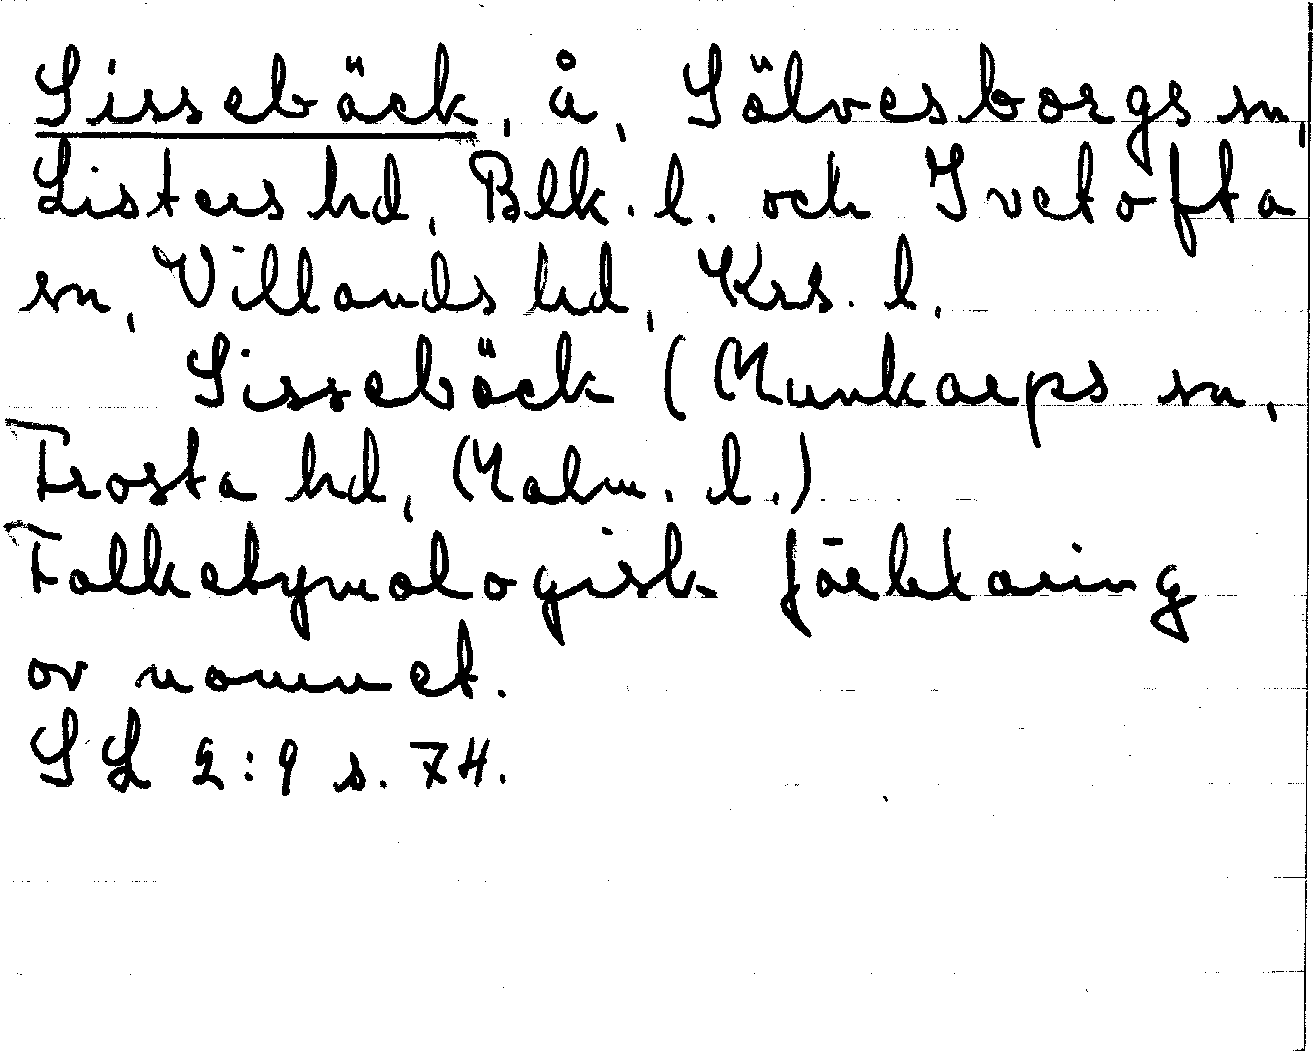 Sissebäck, å, Sölvesborgs sn,
Listers hd, Blk. l. och Ivetofta
sn, Villands hd, Krs. l.
Sissebäck (Munkarps sn,
Frosta hd, Malm. l.)
Folketymologisk förklaring
av namnet.
SL 2:9 s. 74.